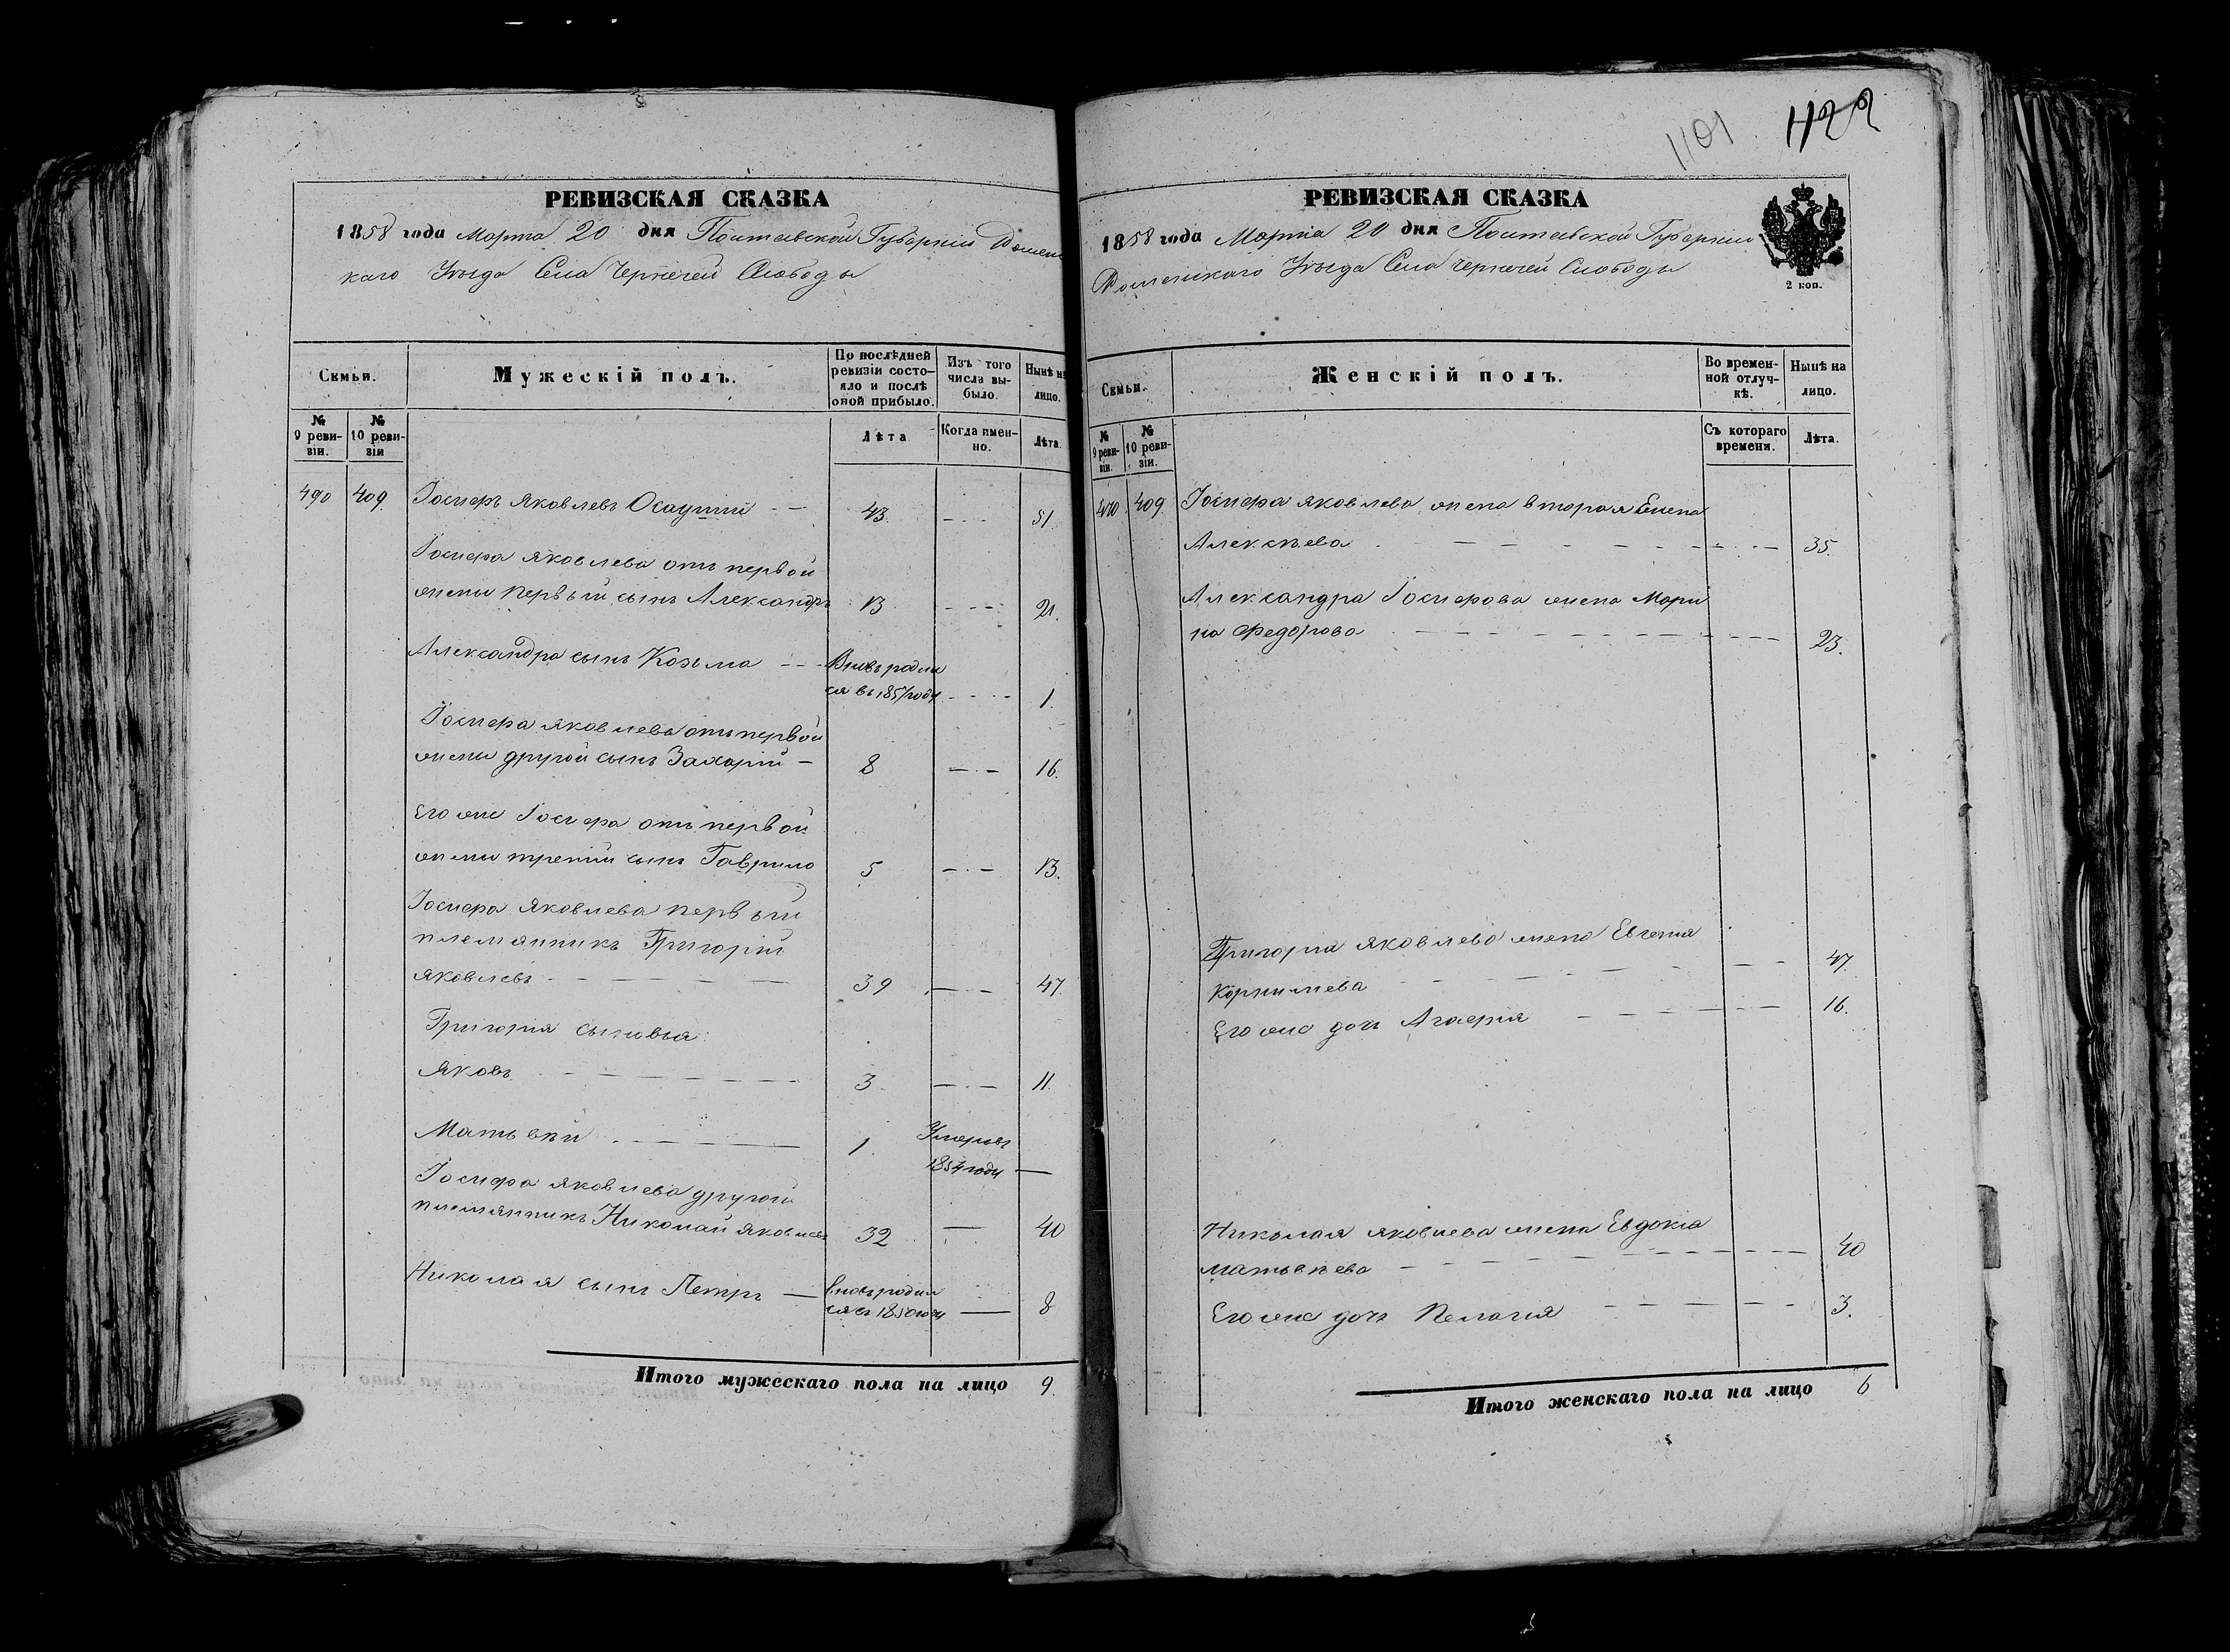 1101 1122
РЕВИЗСКАЯ СКАЗКА
1858 года Марта 20 дня Полтавской Губерніи Роменс
каго Уѣзда Села Чернечей Слободы
Семьи.
Мужескій полъ.
По послѣдней ревизіи состояло и послѣ оной прибыло.
Изъ того числа выбыло.
Нынѣ на лицо.
№ 9 ревизіи.
№ 10 ревизіи
Лѣта
Когда именно.
Лѣта.
490 409 Іосифъ Яковлевъ Осадчій 43 51
Іосифа Яковлева отъ первой
жены первый сынъ Александръ 13 21.
Александра сынъ Козьма Вновь роди
ся въ 1857 году 1.
Іосифа Яковлева отъ первой
жены другой сынъ Захарій 8 16.
Его же Іосифа отъ первой
жены третій сынъ Гаврило 5 13.
Іосифа Яковлева первый
племянникъ Григорій
Яковлевъ 39 47.
Григорія сыновья:
Яковъ 3 11.
Матвѣй 1 Умеръ въ
1854 году
Іосифа Яковлева другой
племянникъ Николай Яковлевъ 32 40
Николая сынъ Петръ вновь родил
ся въ 1850 году 8
Итого мужескаго пола на лицо 9.
РЕВИЗСКАЯ СКАЗКА
1858 года Марта 20 дня Полтавской Губерніи
Роменскаго Уѣзда Села Чернечей Слободы
2 коп.
Семьи.
Женскій полъ.
Во временной отлучкѣ.
Нынѣ на лицо.
№ 9 ревизіи.
№ 10 ревизіи.
Съ котораго времени.
Лѣта.
490 409 Іосифа Яковлева жена вторая Елена
Алексѣева 35.
Александра Іосифова жена Мари
на Федорова 23.
Григорія Яковлева жена Евгенія
Корнилиева 47.
Его же дочь Агафія 16.
Николая Яковлева жена Евдокія
Матвѣева 40
Его же дочь Пелагія 3.
Итого женскаго пола на лицо 6